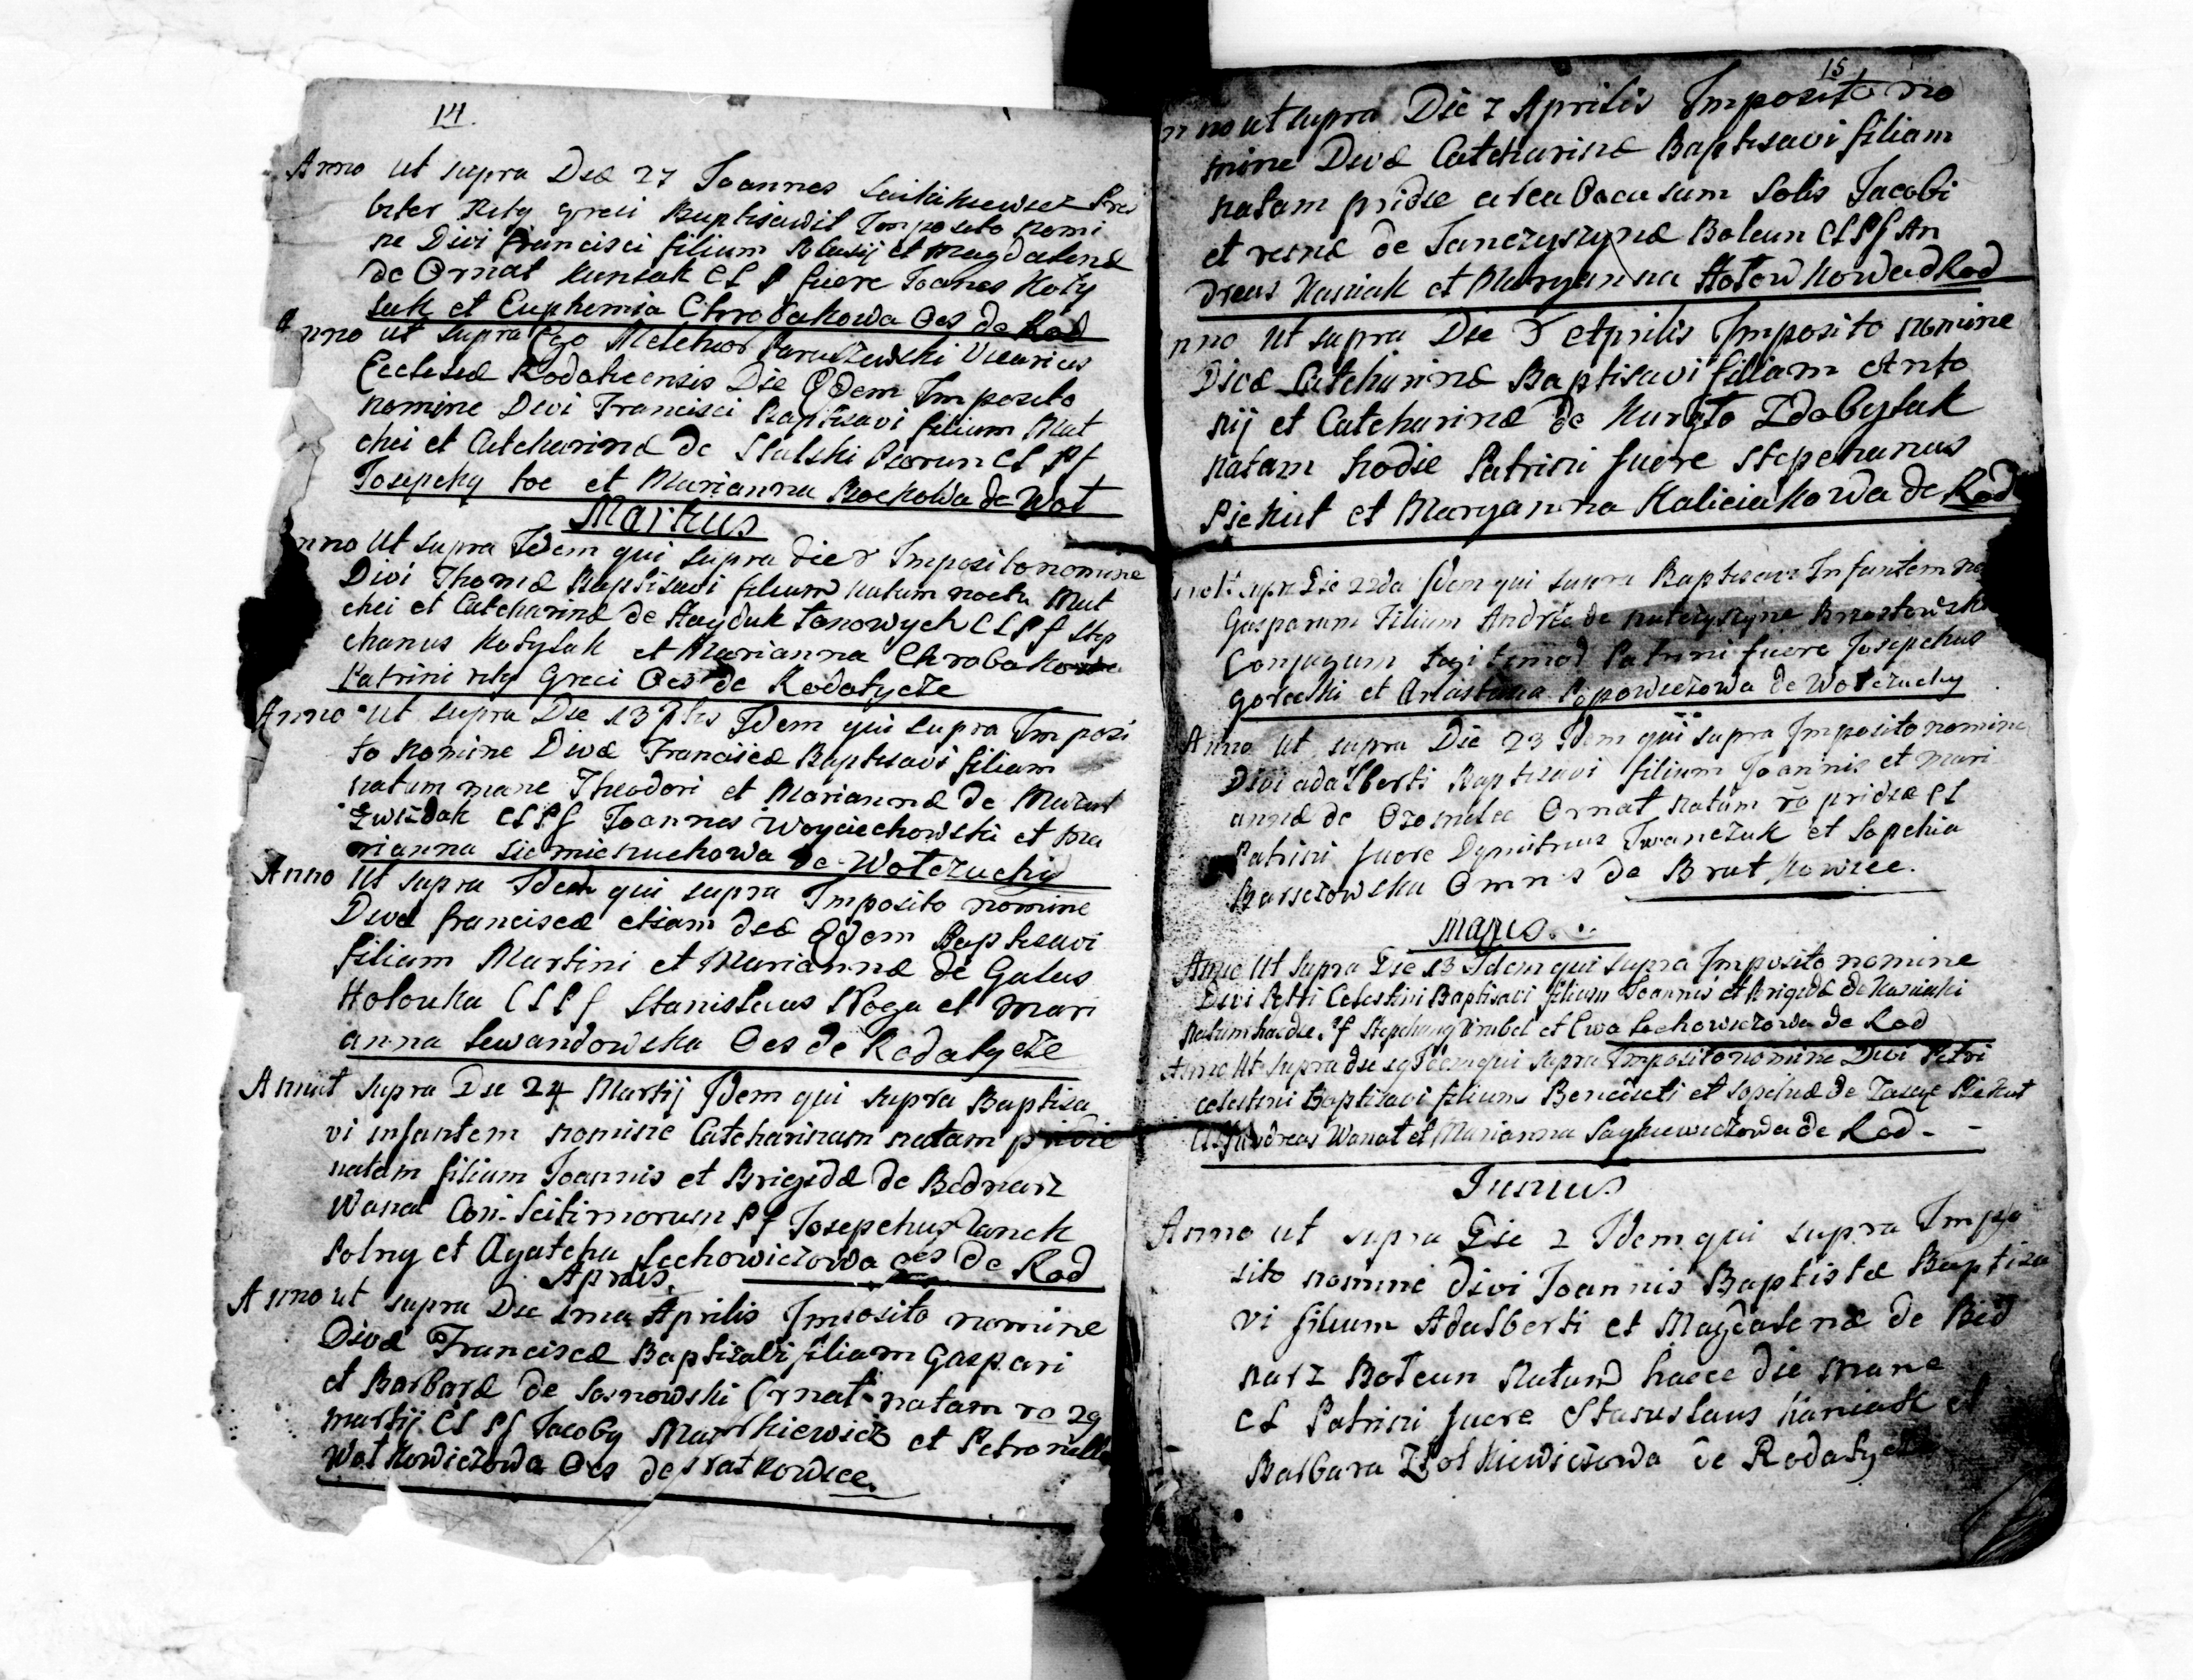 14.
Anno ut supra Die 27 Joannes Presb
biter Ritg Greci Baptisavit Imposito nomi
ne Divi Francisci filium Blasij et Magdalenæ
de Ornat Kuntak CL P fuere Joanes Koty
suk et Euphemia Chrobakowa Oes de Rod
Anno ut supra Ego Melchior Paruszewski Vicarius
Ecclesiæ Rodaticensis Die Eodem Imposito
nomine Divi Francisci Baptisavi filium Mat
chei et Catcharinæ de Stalski Piorun CL Pf
Josepchy et Marianna de Wot
Martius
Anno Ut supra Idem qui supra die 8 Imposito nomine
Divi Thomæ Baptisavi filium natum noctu Mat
chei et Catcharinæ de Hayduk CLPf Step
chanus Kotysak et Marianna Chrobakowa
Patrini ritg Greci Oes de Rodatycze
Anno Ut supra Die 13 Idem qui supra Imposi
to nomine Divæ Franciscæ Baptisavi filiam
natam mane Theodori et Mariannæ de Mazur
Zwizdak CLPf Joannes Woyciechowski et Ma
rianna Siemieniuchowa de Wotczuchy
Anno Ut supra Idem qui supra Imposito nomine
Divæ Franciscæ etiam die Eodem Baptisavi
filiam Martini et Mariannæ de Galus
Holouka CLPf Stanislaus Noga et Mari
anna Lewandowska Oes de Rodatycze
Annut supra Die 24 Martij Idem qui supra Baptisa
vi infantem nomine Catcharinam natam pridie
natam filiam Joannis et Brigidæ de Bednarz
Wanat Con: Leitimorum Pf Josepchus Janek
Polny et Agatcha Lechowiczowa oes de Rod
Aprilis.
Anno ut supra Die 1ma Aprilis Imposito nomine
Divæ Franciscæ Baptizavi filiam Gaspari
et Barbaræ de Sosnowski Ornat natam ro 29
martij CL Pf Jacoby Markiewicz et Petronella
Watkowiczowa Oes de Bratkowice.
15
nno ut supra Die 7 Aprilis Imposito no
mine Divæ Catcharinæ Baptisavi filiam
natam pridie circa Occasum Solis Jacobi
et reginæ de Janczyszynæ Bolcun CLPf An
dreas Kasiak et Maryanna Hotowkowa d Rod
nno Ut supra Die 8 Aprilis Imposito nomine
Divæ Catcharinæ Baptisavi filiam Anto
nij et Catcharinæ de Kurgto Zdobylak
natam hodie Patrini fuere Stepchanus
Piekut et Maryanna Kaliciakowa de Rod
Die 22da Idem qui supra Baptisavi Infantem no
Gasparum Filium Andreæ de Brzostowski
Conjugum Legitimor Patrini fuere Josepchus
gorecki et Anastasia Popowiczowa de Wotczuchy
Anno Ut supra Die 23 Idem qui supra Imposito nomine
Divi adalberti Baptisavi filium Joannis et Mari
annæ de Ozomulec Ornat natum ro pridie CL
Patrini fuere Dymitrus Iwanczuk et Sopchia
Barszczowska Omnes de Bratkowice.
Majus.
Anno Ut supra Die 13 Idem qui supra Imposito nomine
Divi Petri Celestini Baptisavi filium Joannis et Brigidæ de Kasiaki
natum haedie. Pf Stepchany Wrubel et Ewa Lechowiczowa de Rod
Anno Ut supra die 19 Idem qui supra Imposito nomine Divi Petri
celestini Baptisavi filium Benedicti et Sopchiæ de Piekut
CLPf Andreas Wanat et Marianna de Rod - -
Junius
Anno ut supra Die 2 Idem qui supra Impo
sito nomine divi Joannis Baptistæ Baptiza
vi filium Adalberti et Magdalenæ de Bed
narz Botcun natum haece die mane
CL Patrini fuere Stanislaus Kaniak et
Barbara Zolkiewiczowa de Rodatycze